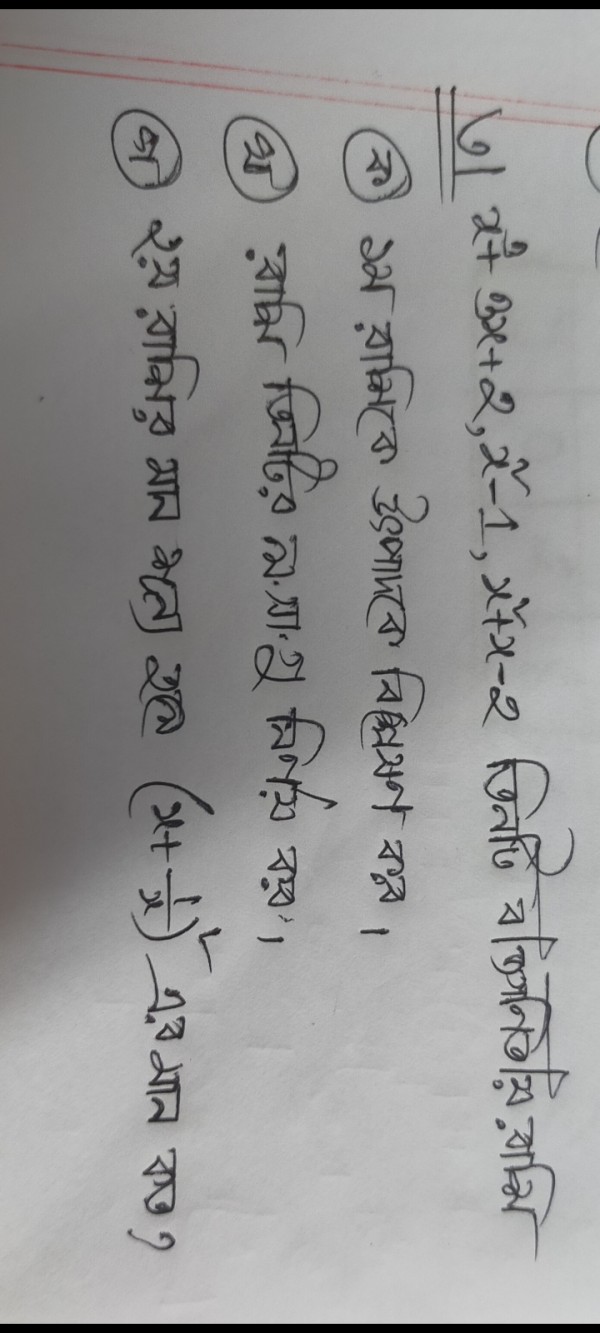 ৩। x² + 3x + 2, x² - 1, x² + x - 2 তিনটি বীজগণিতীয় রাশি
ক) ১ম রাশিকে উৎপাদকে বিশ্লেষণ কর।
খ) রাশি তিনটির ল.সা.গু নির্ণয় কর।
গ) ২য় রাশির মান শূন্য হলে (x + 1/x)² এর মান কত?